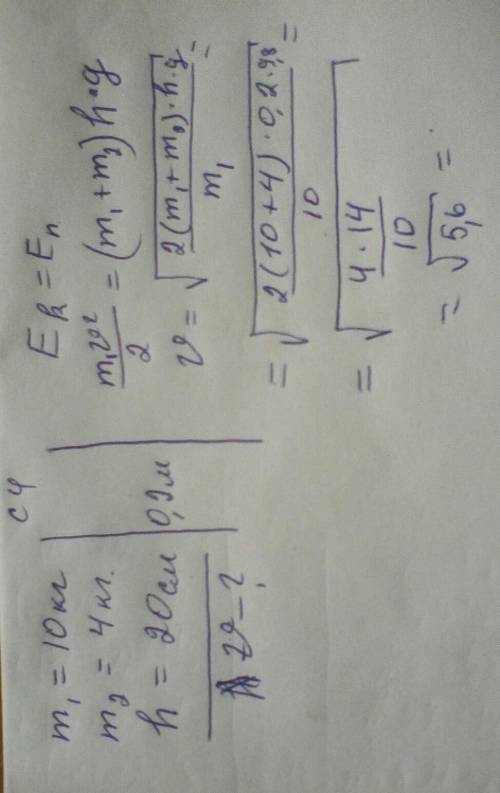 СИ
m₁ = 10 кг
m₂ = 4 кг.
h = 20 см
0,2 м
v – ?
Eк = Eп
m₁v²/2 = (m₁ + m₂) h · g
v = √(2(m₁ + m₂) · h · g / m₁) =
= √(2(10 + 4) · 0,2 · 9,8 / 10) =
= √(4 · 14 / 10)
= √5,6 =